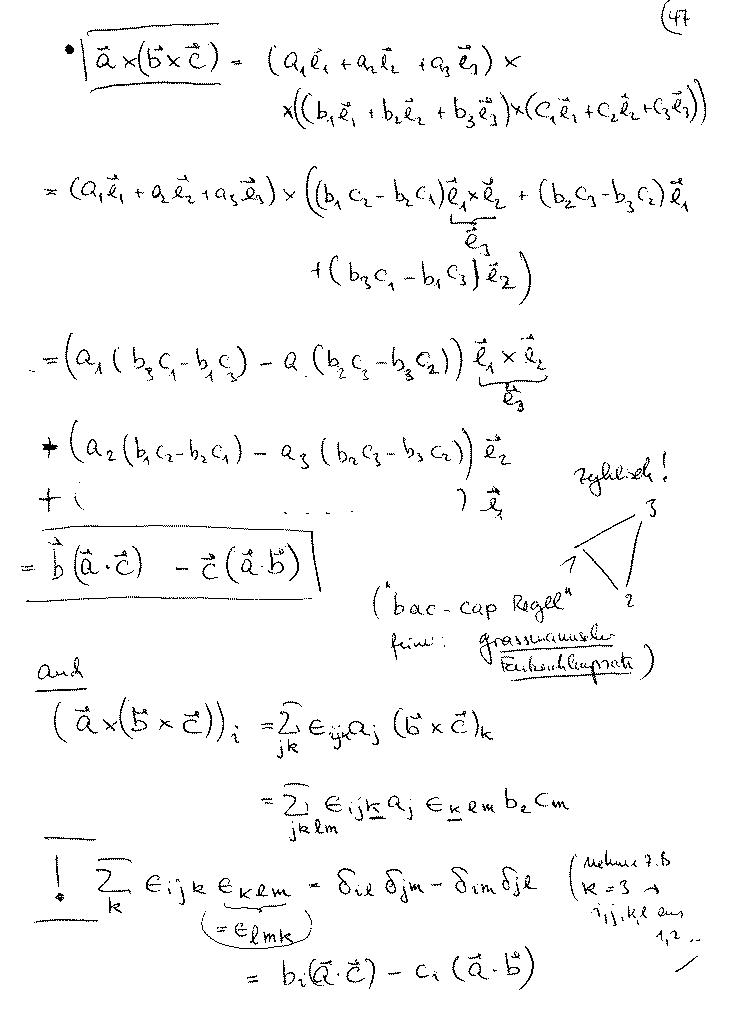 (47
• a⃗ ×(b⃗ × c⃗) = (a₁e⃗₁ + a₂e⃗₂ + a₃e⃗₃) ×
×((b₁e⃗₁ + b₂e⃗₂ + b₃e⃗₃)×(c₁e⃗₁ + c₂e⃗₂ + c₃e⃗₃))
= (a₁e⃗₁ + a₂e⃗₂ + a₃e⃗₃) × ((b₁c₂ - b₂c₁)e⃗₁×e⃗₂ + (b₂c₃ - b₃c₂)e⃗₁
e⃗₃
+ (b₃c₁ - b₁c₃)e⃗₂)
= (a₁(b₃c₁ - b₁c₃) - a (b₂c₃ - b₃c₂)) e⃗₁ × e⃗₂
e⃗₃
+ (a₂(b₁c₂ - b₂c₁) - a₃(b₂c₃ - b₃c₂)) e⃗₂
+ ( . . . . ) e⃗₁
zyklisch!
3
1
2
= b⃗(a⃗ · c⃗) - c⃗(a⃗ · b⃗)
("bac-cap Regel"
feiner: grassmannscher
Entwicklungssatz)
auch
(a⃗ ×(b⃗ × c⃗))ᵢ = Σ_jk ϵ_ijk a_j (b⃗ × c⃗)_k
= Σ_jklm ϵ_ijk a_j ϵ_klm b_l c_m
! Σ_k ϵ_ijk ϵ_klm = δ_il δ_jm - δ_im δ_jl (nehme z.B
k = 3 →
i,j,k,l aus
1,2 ..
= ϵ_lmk
= bᵢ(a⃗ · c⃗) - cᵢ (a⃗ · b⃗)